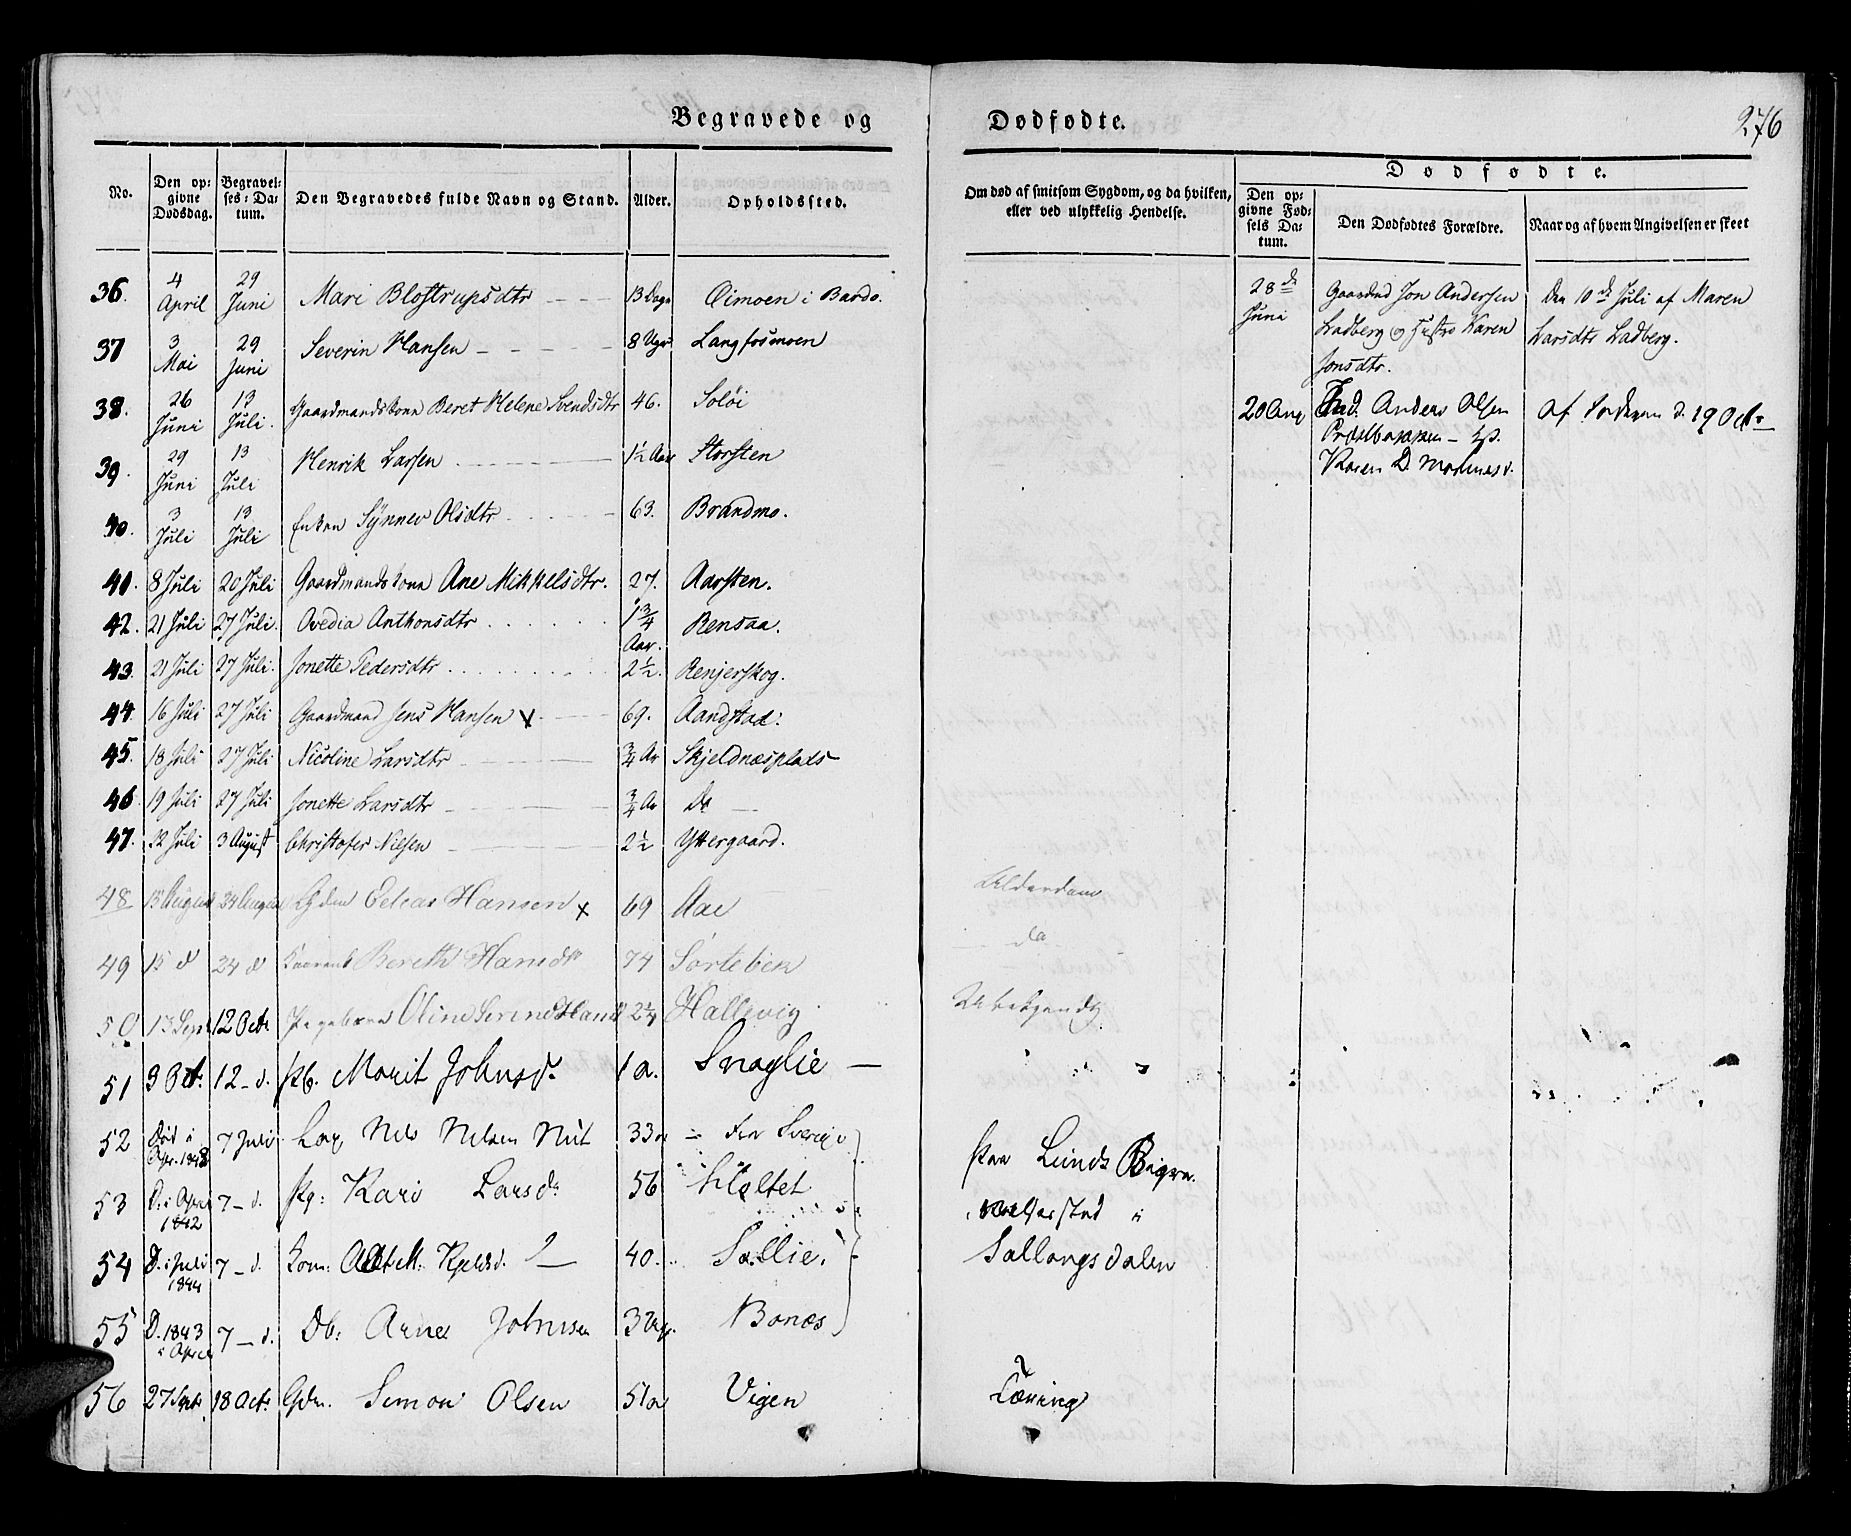 Begravede og Dødfødte. 276
No. Den opgivne Dødsdag. Begravelses-Datum. Den Begravedes fulde Navn og Stand. Alder. Opholdssted. Om død af smitsom Sygdom, og da hvilken, eller ved ulykkelig Hendelse.
Dødfødte.
Den opgivne Fødsels Datum. Den Dødfødtes Forældre. Naar og af hvem Angivelsen er skeet
36. 4 April 29 Juni Mari Blostrupsdtr 13 Dage Oimoen i Bardo.
37 3 Mai 29 Juni Severin Hansen 8 Uger Langfosmoen
38. 26 Juni 13 Juli. Gaardmandskone Beret Helene Svendsdtr 46. Soløi
39. 29 Juni 13 Juli Henrik Larsen 1½ Aar Storsten
40. 3 Juli 13 Juli Enken Synnev Olsdtr 63. Brandmo.
41. 8 Juli 20 Juli Gaardmandskone Ane Mikkelsdtr. 27. Aarsten.
42. 21 Juli 27 Juli. Ovedia Anthonsdtr 1¾ Aar. Rensaa.
43. 21 Juli 27 Juli. Jonette Pedersdtr 2½. Renjerskog.
44. 16 Juli 27 Juli Gaardmand Jens Hansen x 69. Aandstad.
45. 18 Juli 27 Juli Nicoline Larsdtr ¾ Ar Skjeldnæsplads
46 19 Juli 27 Juli Jonette Larsdtr ¾ Ar Do
47. 12 Juli 3 August Christofer Nilsen 2½ Yttergaard.
48 15 August 24 August Hansen x 69 Aae Alderdom
49 15 d 24 d Bereth Hansdtr 74 Sørtebek do
50 13 Sept 12 Octr Oline Serine Hansd 2¼ Hallevig Ubekjendt
51 9 Oct. 12 - d. Pb. Marit Johnsd. 1 a. Snoglie
52 Død i Apr. 1843 7 Juli Lap Nils Nilsen Nut 33 a fra Sverige
53 D. i April 1842 7 - d. Pg: Kari Larsd. 56 Holtet
54 D. i Juli 1844 7 - d. Kone: 40. Sollie.
55 D. 1843 i April 7 - d. Db: Arne Johnsen 3 Uger. Bonæs
Paa Lunds Begravelsested i Sallangsdalen
56 27 Septr 18 Octr. Gdm. Simon Olsen 51 a Vigen Tæring
28de Juni Gaardmd Jon Andersen Ladberg og Hustro Karen Jonsdtr. Den 10de Juli af Maren Larsdtr Ladberg.
20 Aug Anders Olsen Præstbakken - Karen D. af Faderen d. 19 Octr